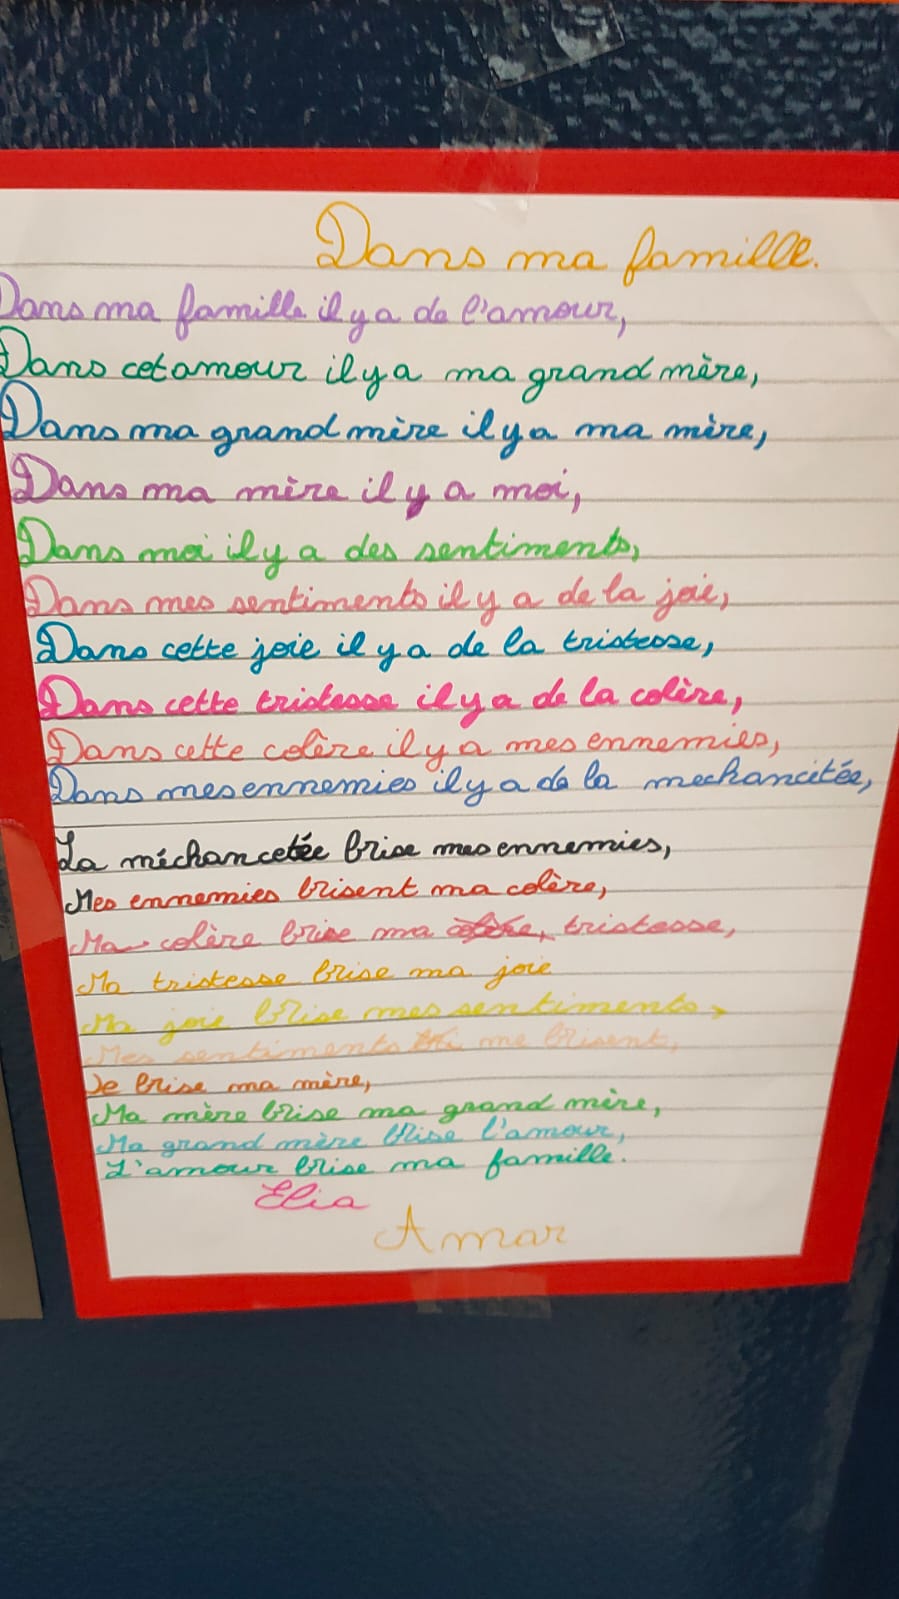 Dans ma famille.
Dans ma famille il y a de l'amour,
Dans cet amour il y a ma grand mère,
Dans ma grand mère il y a ma mère,
Dans ma mère il y a moi,
Dans moi il y a des sentiments,
Dans mes sentiments il y a de la joie,
Dans cette joie il y a de la tristesse,
Dans cette tristesse il y a de la colère,
Dans cette colère il y a mes ennemies,
Dans mes ennemies il y a de la mechancetée,
La méchancetée brise mes ennemies,
Mes ennemies brisent ma colère,
Ma colère brise ma tristesse,
Ma tristesse brise ma joie
Ma joie brise mes sentiments,
Mes sentiments me brisent,
Je brise ma mère,
Ma mère brise ma grand mère,
Ma grand mère brise l'amour,
L'amour brise ma famille.
Elia
Amar